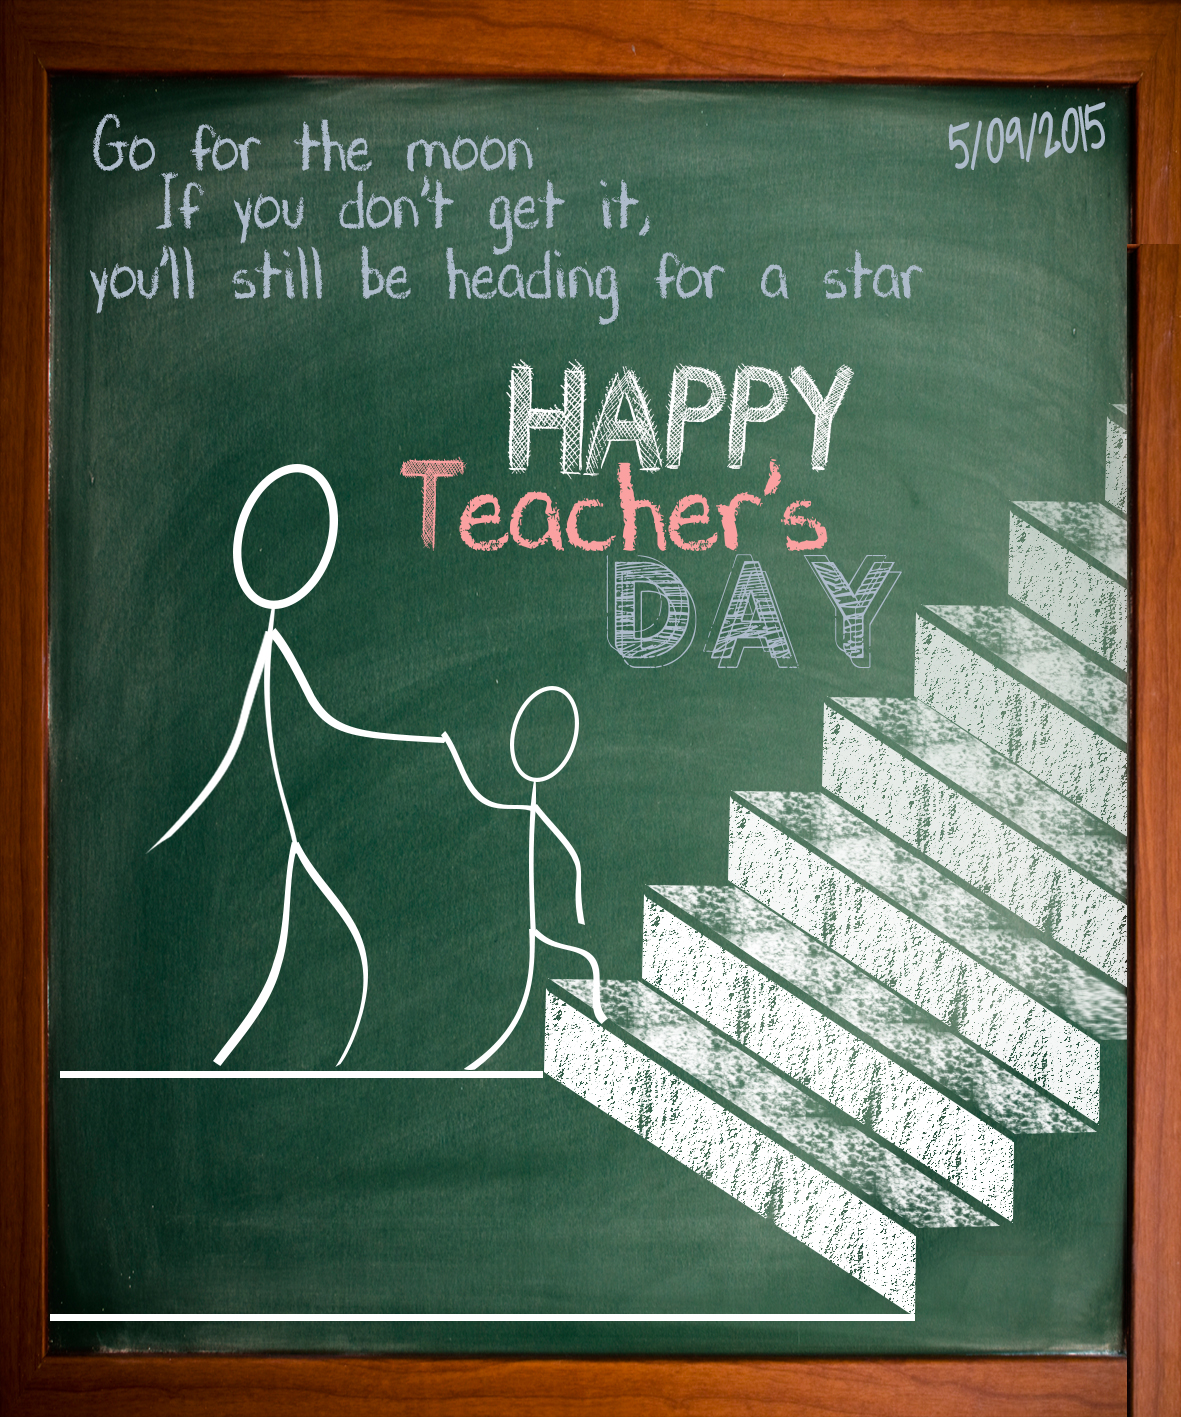 Go for the moon
5/09/2015
If you don't get it,
you'll still be heading for a star
HAPPY
Teacher's
DAY